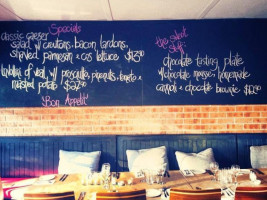 Specials
classic caeser
salad w/ croutons, bacon lardons,
shaved parmesan & cos lettuce $17.50
of veal, w/ prosciutto, pinenuts, tomato &
roasted potato $32.50
Bon Appetit
the sweet
stuff
chocolate tasting plate
w/ chocolate mousse, homemade
cannoli & chocolate brownie $12.50